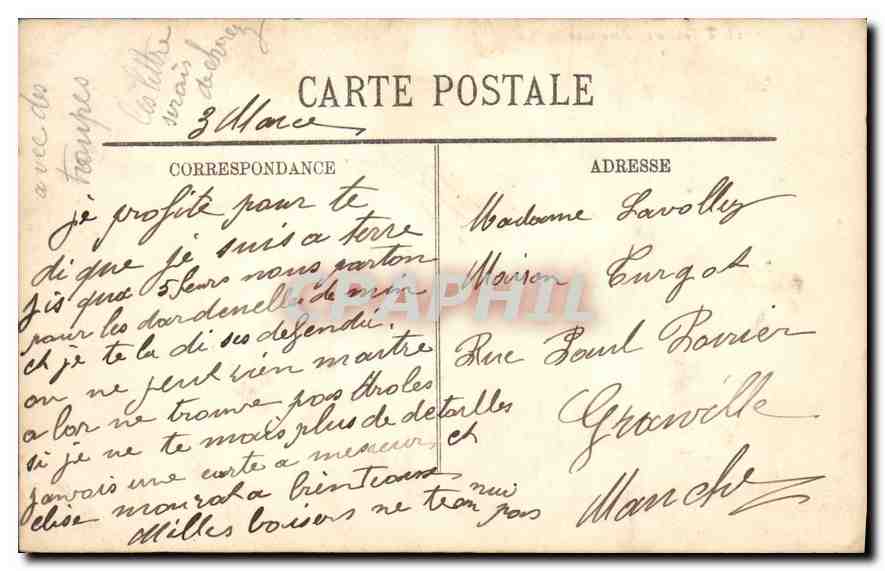 avec des
troupes
ces lettre
serais
CARTE POSTALE
3 Marce
CORRESPONDANCE
je profite pour te
di que je suis a terre
jis'qua 5 heurs nous parton
pour les dardenelles de min
et je te la di ses defendu,
on ne peut rien maitre
a lor ne trouve pas droles
si je ne te mais plus de detailles
janvais une carte a mesieur et
elise mourat a bientaux
Milles baisers ne tean nui
pas
ADRESSE
Madame Lavolley
Maison Turgot
Rue Paul Poirier
Granville
Manche
CPAPHIL